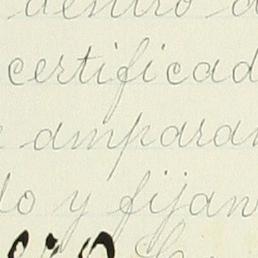 dentro d
certificad
amparan
do y fijan